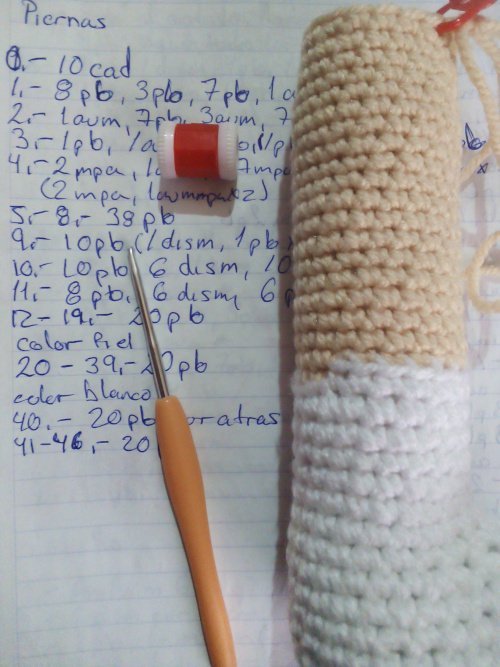 Piernas
0.- 10 cad
1.- 8 pb, 3pb, 7pb, 1a
2.- 1aum, 7pb, 3aum, 7
3.- 1pb, 1a
4.- 2 mpa, 7mpa
(2 mpa,
5.- 8.- 38 pb
9.- 10pb (1 dism, 1pb
10.- 10pb 6 dism, 10
11.- 8pb, 6 dism, 6 p
12 - 19.- 20pb
color piel
20 - 39.- 20pb
color blanco
40.- 20pb por atras
41-46.- 20